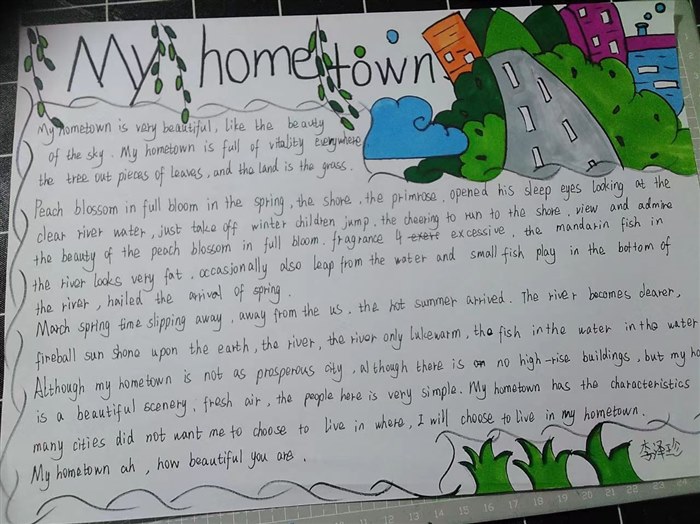 My hometown
My hometown is very beautiful, like the beauty
of the sky. My hometown is full of vitality everywhere
the tree out pieces of leaves, and the land is the grass.
Peach blossom in full bloom in the spring, the shore, the primrose, opened his sleep eyes looking at the
clear river water, just take off winter children jump, the cheering to run to the shore, view and admire
the beauty of the peach blossom in full bloom. fragrance 4 excessive, the mandarin fish in
the river looks very fat, occasionally also leap from the water and small fish play in the bottom of
the river, hailed the arrival of spring.
March spring time slipping away, away from the us, the hot summer arrived. The river becomes clearer,
fireball sun shone upon the earth, the river, the river only lukewarm, the fish in the water in the water
Although my hometown is not as prosperous city, although there is no high-rise buildings, but my ho
is a beautiful scenery, fresh air, the people here is very simple. My hometown has the characteristics
many cities did not want me to choose to live in where, I will choose to live in my hometown.
My hometown ah, how beautiful you are.
李泽珍
14 15 16 17 18 19 20 21 22 23 24